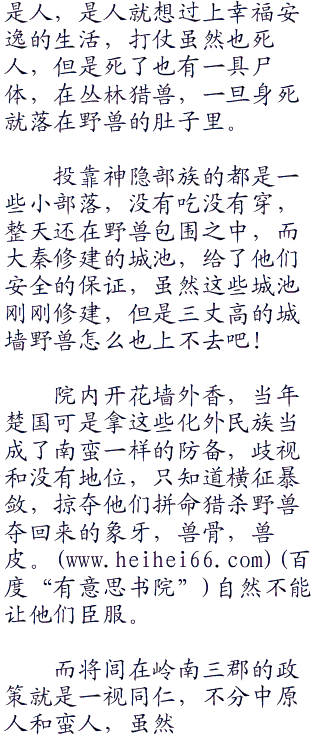 是人，是人就想过上幸福安
逸的生活，打仗虽然也死
人，但是死了也有一具尸
体，在丛林猎兽，一旦身死
就落在野兽的肚子里。
投靠神隐部族的都是一
些小部落，没有吃没有穿，
整天还在野兽包围之中，而
大秦修建的城池，给了他们
安全的保证，虽然这些城池
刚刚修建，但是三丈高的城
墙野兽怎么也上不去吧！
院内开花墙外香，当年
楚国可是拿这些化外民族当
成了南蛮一样的防备，歧视
和没有地位，只知道横征暴
敛，掠夺他们拼命猎杀野兽
夺回来的象牙，兽骨，兽
皮。(www.heihei66.com)(百
度“有意思书院”)自然不能
让他们臣服。
而将闾在岭南三郡的政
策就是一视同仁，不分中原
人和蛮人，虽然